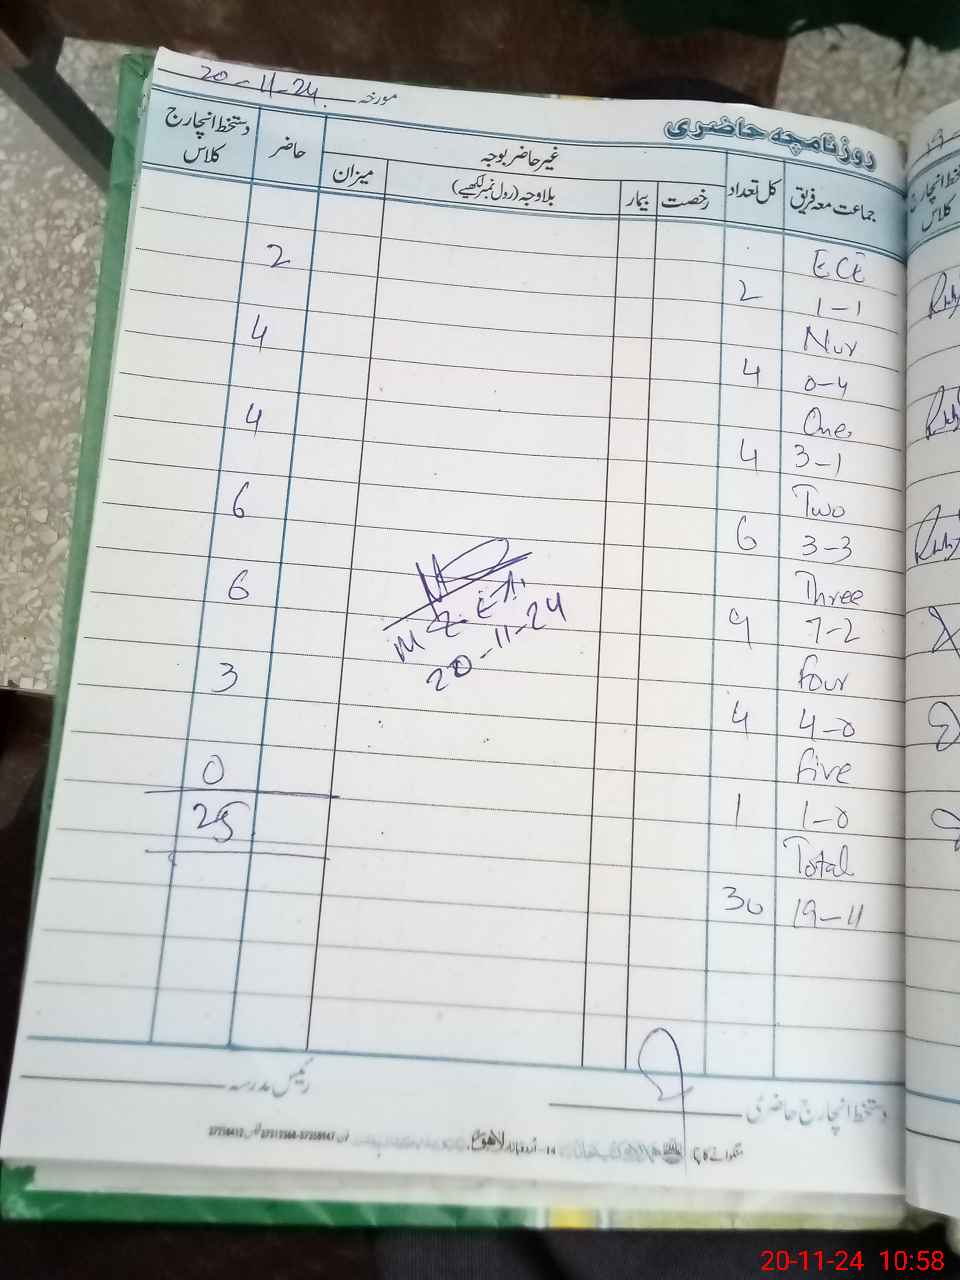 مورخہ 20-11-24
روزنامچہ حاضری
جماعت معہ فریق کل تعداد غیر حاضر بوجہ حاضر دستخط انچارج کلاس
رخصت بیمار بلاوجہ (رول نمبر لکھیے) میزان
ECE
1-1 2 2
Nur
0-4 4 4
One
3-1 4 4
Two
3-3 6 6
Three
7-2 9 6
Four
4-0 4 3
Five
1-0 1 0
Total
19-11 30 25
20-11-24
دستخط انچارج حاضری
رئیس مدرسہ
لاہور
20-11-24 10:58